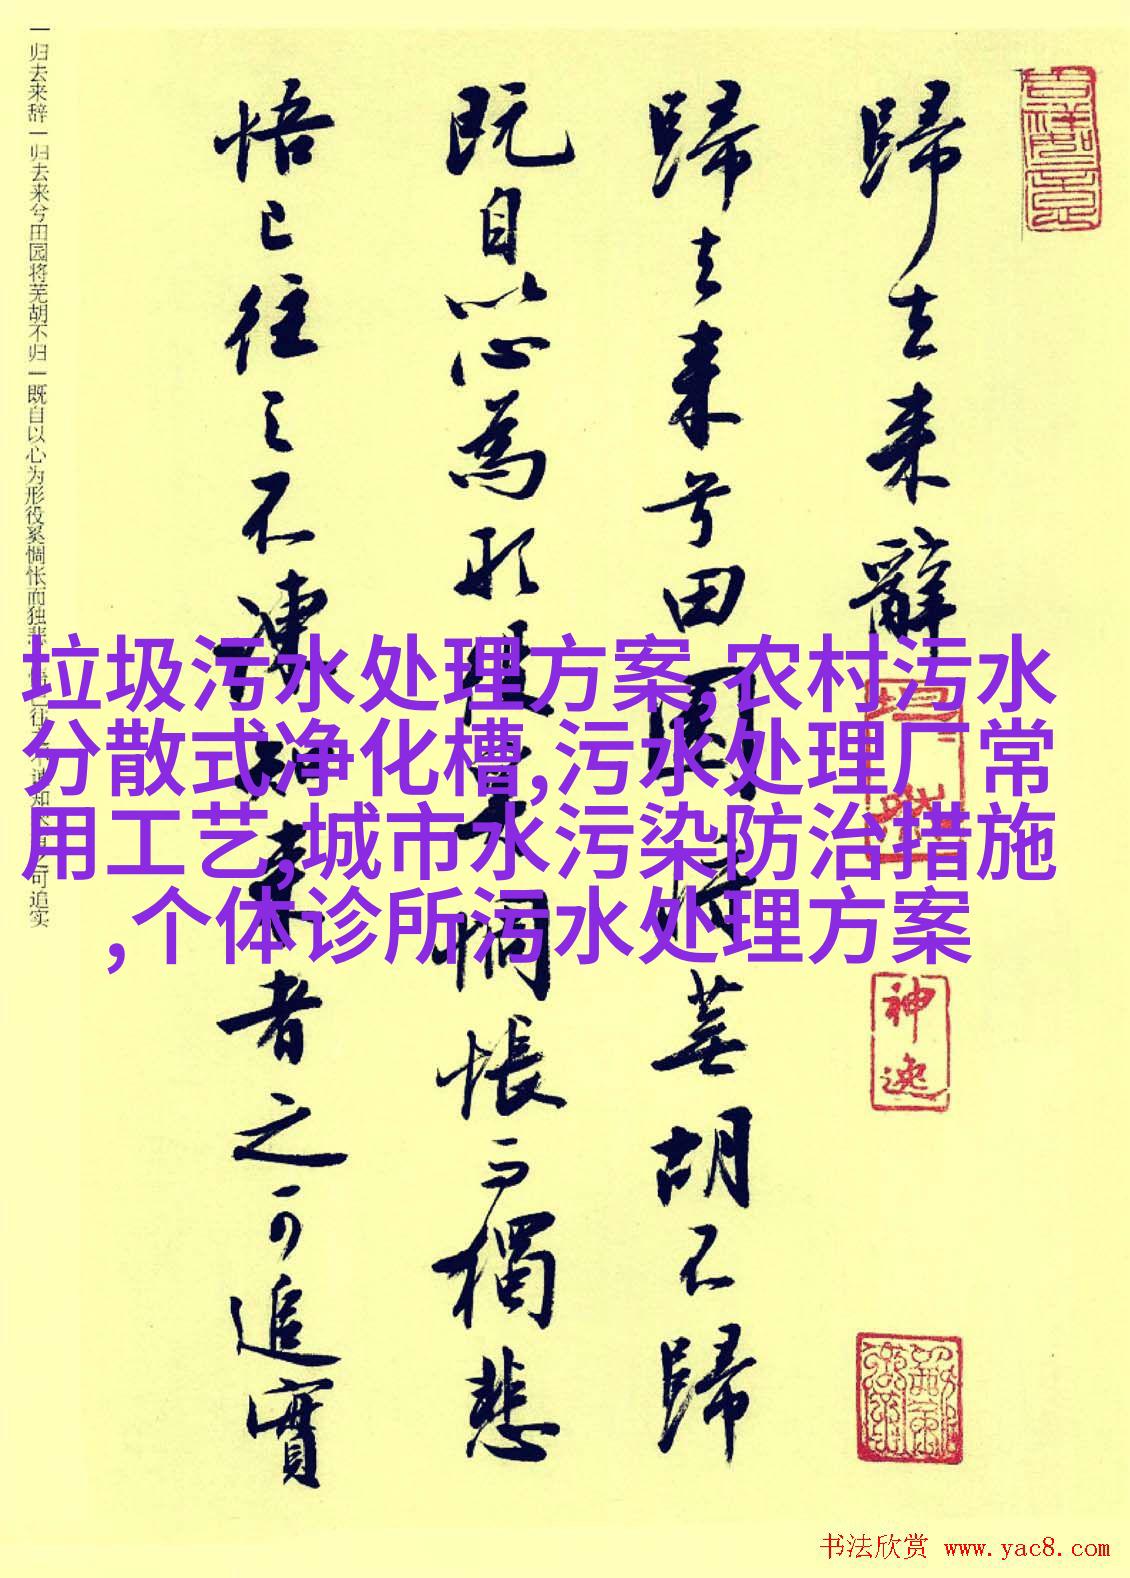 歸去来辭
歸去来兮田園将蕪胡不歸
既自以心為形役奚惆悵而獨悲
悟已往之不諫知来者之可追實
一归去来辞一归去来兮田园将芜胡不归一既自以心为形役奚惆怅而独悲
可追实
垃圾污水处理方案,农村污水
分散式净化槽,污水处理厂常
用工艺,城市水污染防治措施
,个体诊所污水处理方案
神逸
书法欣赏 www.yac8.com